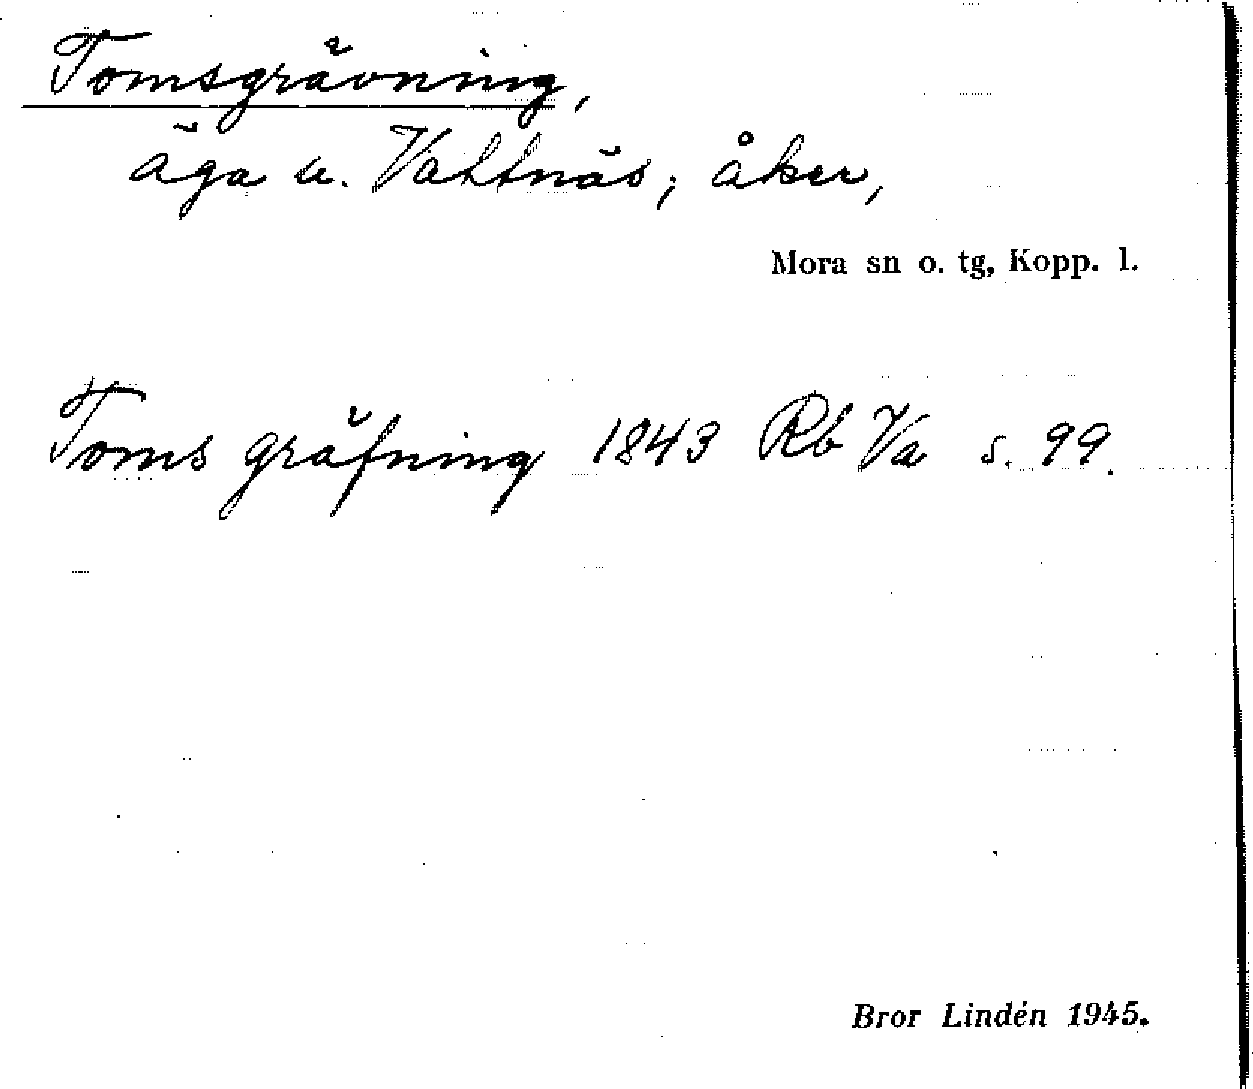 Tomsgrävning,
äga u. Vattnäs; åker,
Mora sn o. tg, Kopp. l.
Toms gräfning 1843 Rb Va s. 99.
Bror Lindén 1945.